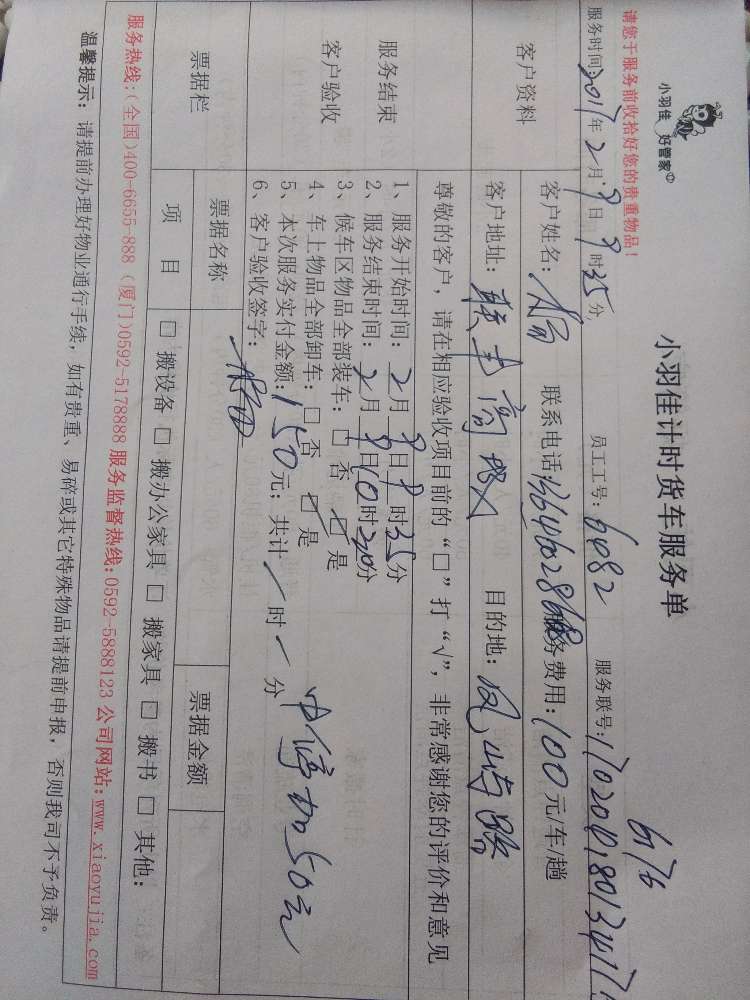 小羽佳 好管家
小羽佳计时货车服务单
请您于服务前收拾好您的贵重物品！
6176
服务时间:2017年2月9日9时35分 员工工号: 6082 服务联号:
客户资料
客户姓名: 联系电话: 服务费用: 100元/车/趟
客户地址: 目的地: 凤屿路
尊敬的客户，请在相应验收项目前的“□”打“√”，非常感谢您的评价和意见
服务结束
客户验收
1、服务开始时间: 2月9日9时35分
2、服务结束时间: 2月9日10时20分
3、候车区物品全部装车: □ 否 ☑ 是
4、车上物品全部卸车: □ 否 ☑ 是
5、本次服务实付金额: 150元; 共计 / 时 / 分
中停加50元
6、客户验收签字:
票据栏
票据名称 票据金额
项 目 □ 搬设备 □ 搬办公家具 □ 搬家具 □ 搬书 □ 其他:
服务热线:(全国)400-6655-888 (厦门)0592-5178888 服务监督热线:0592-5888123 公司网站:www.xiaoyujia.com
温馨提示: 请提前办理好物业通行手续, 如有贵重、易碎或其它特殊物品请提前申报, 否则我司不予负责。